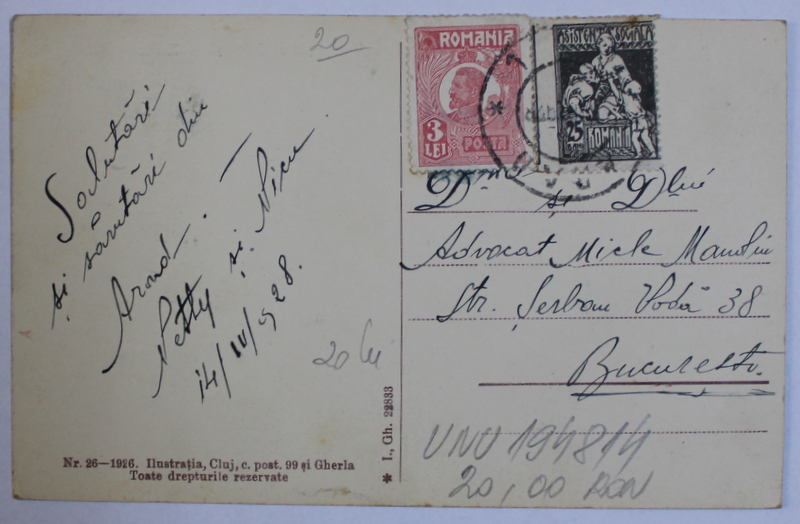 20
Salutări
și sărutări din
Arad. —
Netty și Nicu.
14/IV/928.
20 lei
Nr. 26—1926. Ilustrația, Cluj, c. post. 99 și Gherla
Toate drepturile rezervate
* I., Gh. 22833
ROMANIA
3
LEI
POSTA
ASISTENȚA SOCIALA
25
BANI
ROMANIA
D-nei și D-lui
Advocat Micle Manoliu
Str. Șerban Vodă 38
București.
UNU 194814
20,00 RON